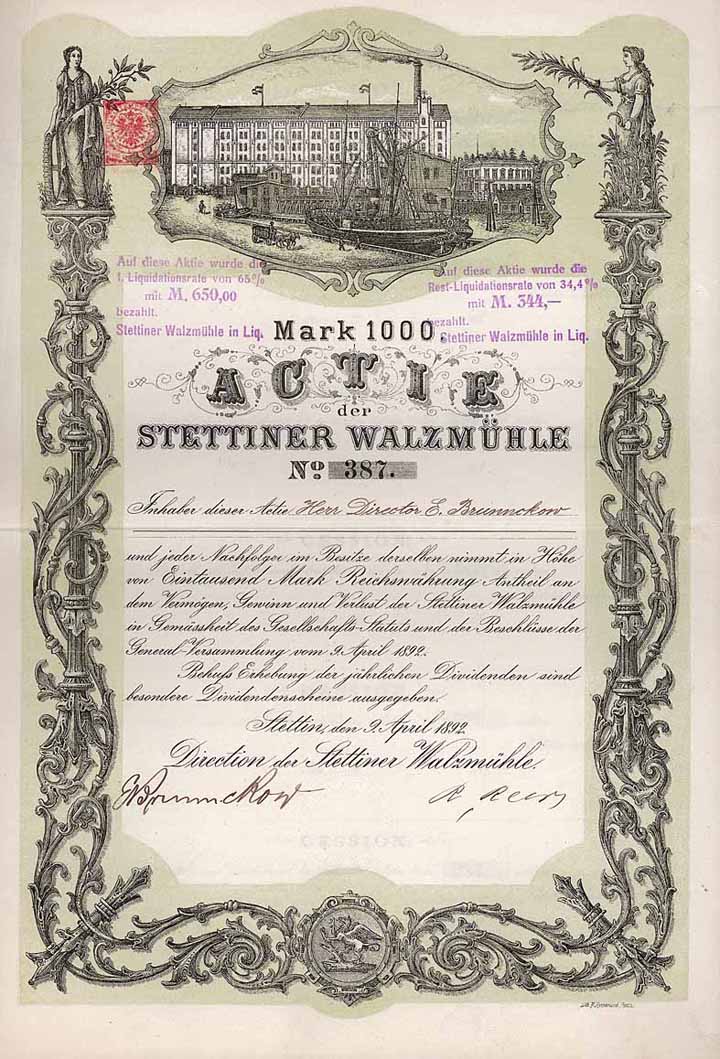 Auf diese Aktie wurde die
1. Liquidationsrate von 65%
mit M. 650,00
bezahlt.
Stettiner Walzmühle in Liq.
Auf diese Aktie wurde die
Rest-Liquidationsrate von 34,4%
mit M. 344,—
bezahlt.
Stettiner Walzmühle in Liq.
Mark 1000
ACTIE
der
STETTINER WALZMÜHLE
No 387.
Inhaber dieser Actie Herr Director E. Brunnckow
und jeder Nachfolger im Besitze derselben nimmt in Höhe
von Eintausend Mark Reichswährung Antheil an
dem Vermögen, Gewinn und Verlust der Stettiner Walzmühle
in Gemässheit des Gesellschafts-Statuts und der Beschlüsse der
General-Versammlung vom 9. April 1892.
Behufs Erhebung der jährlichen Dividenden sind
besondere Dividendenscheine ausgegeben.
Stettin, den 9. April 1892.
Direction der Stettiner Walzmühle.
EBrunnckow